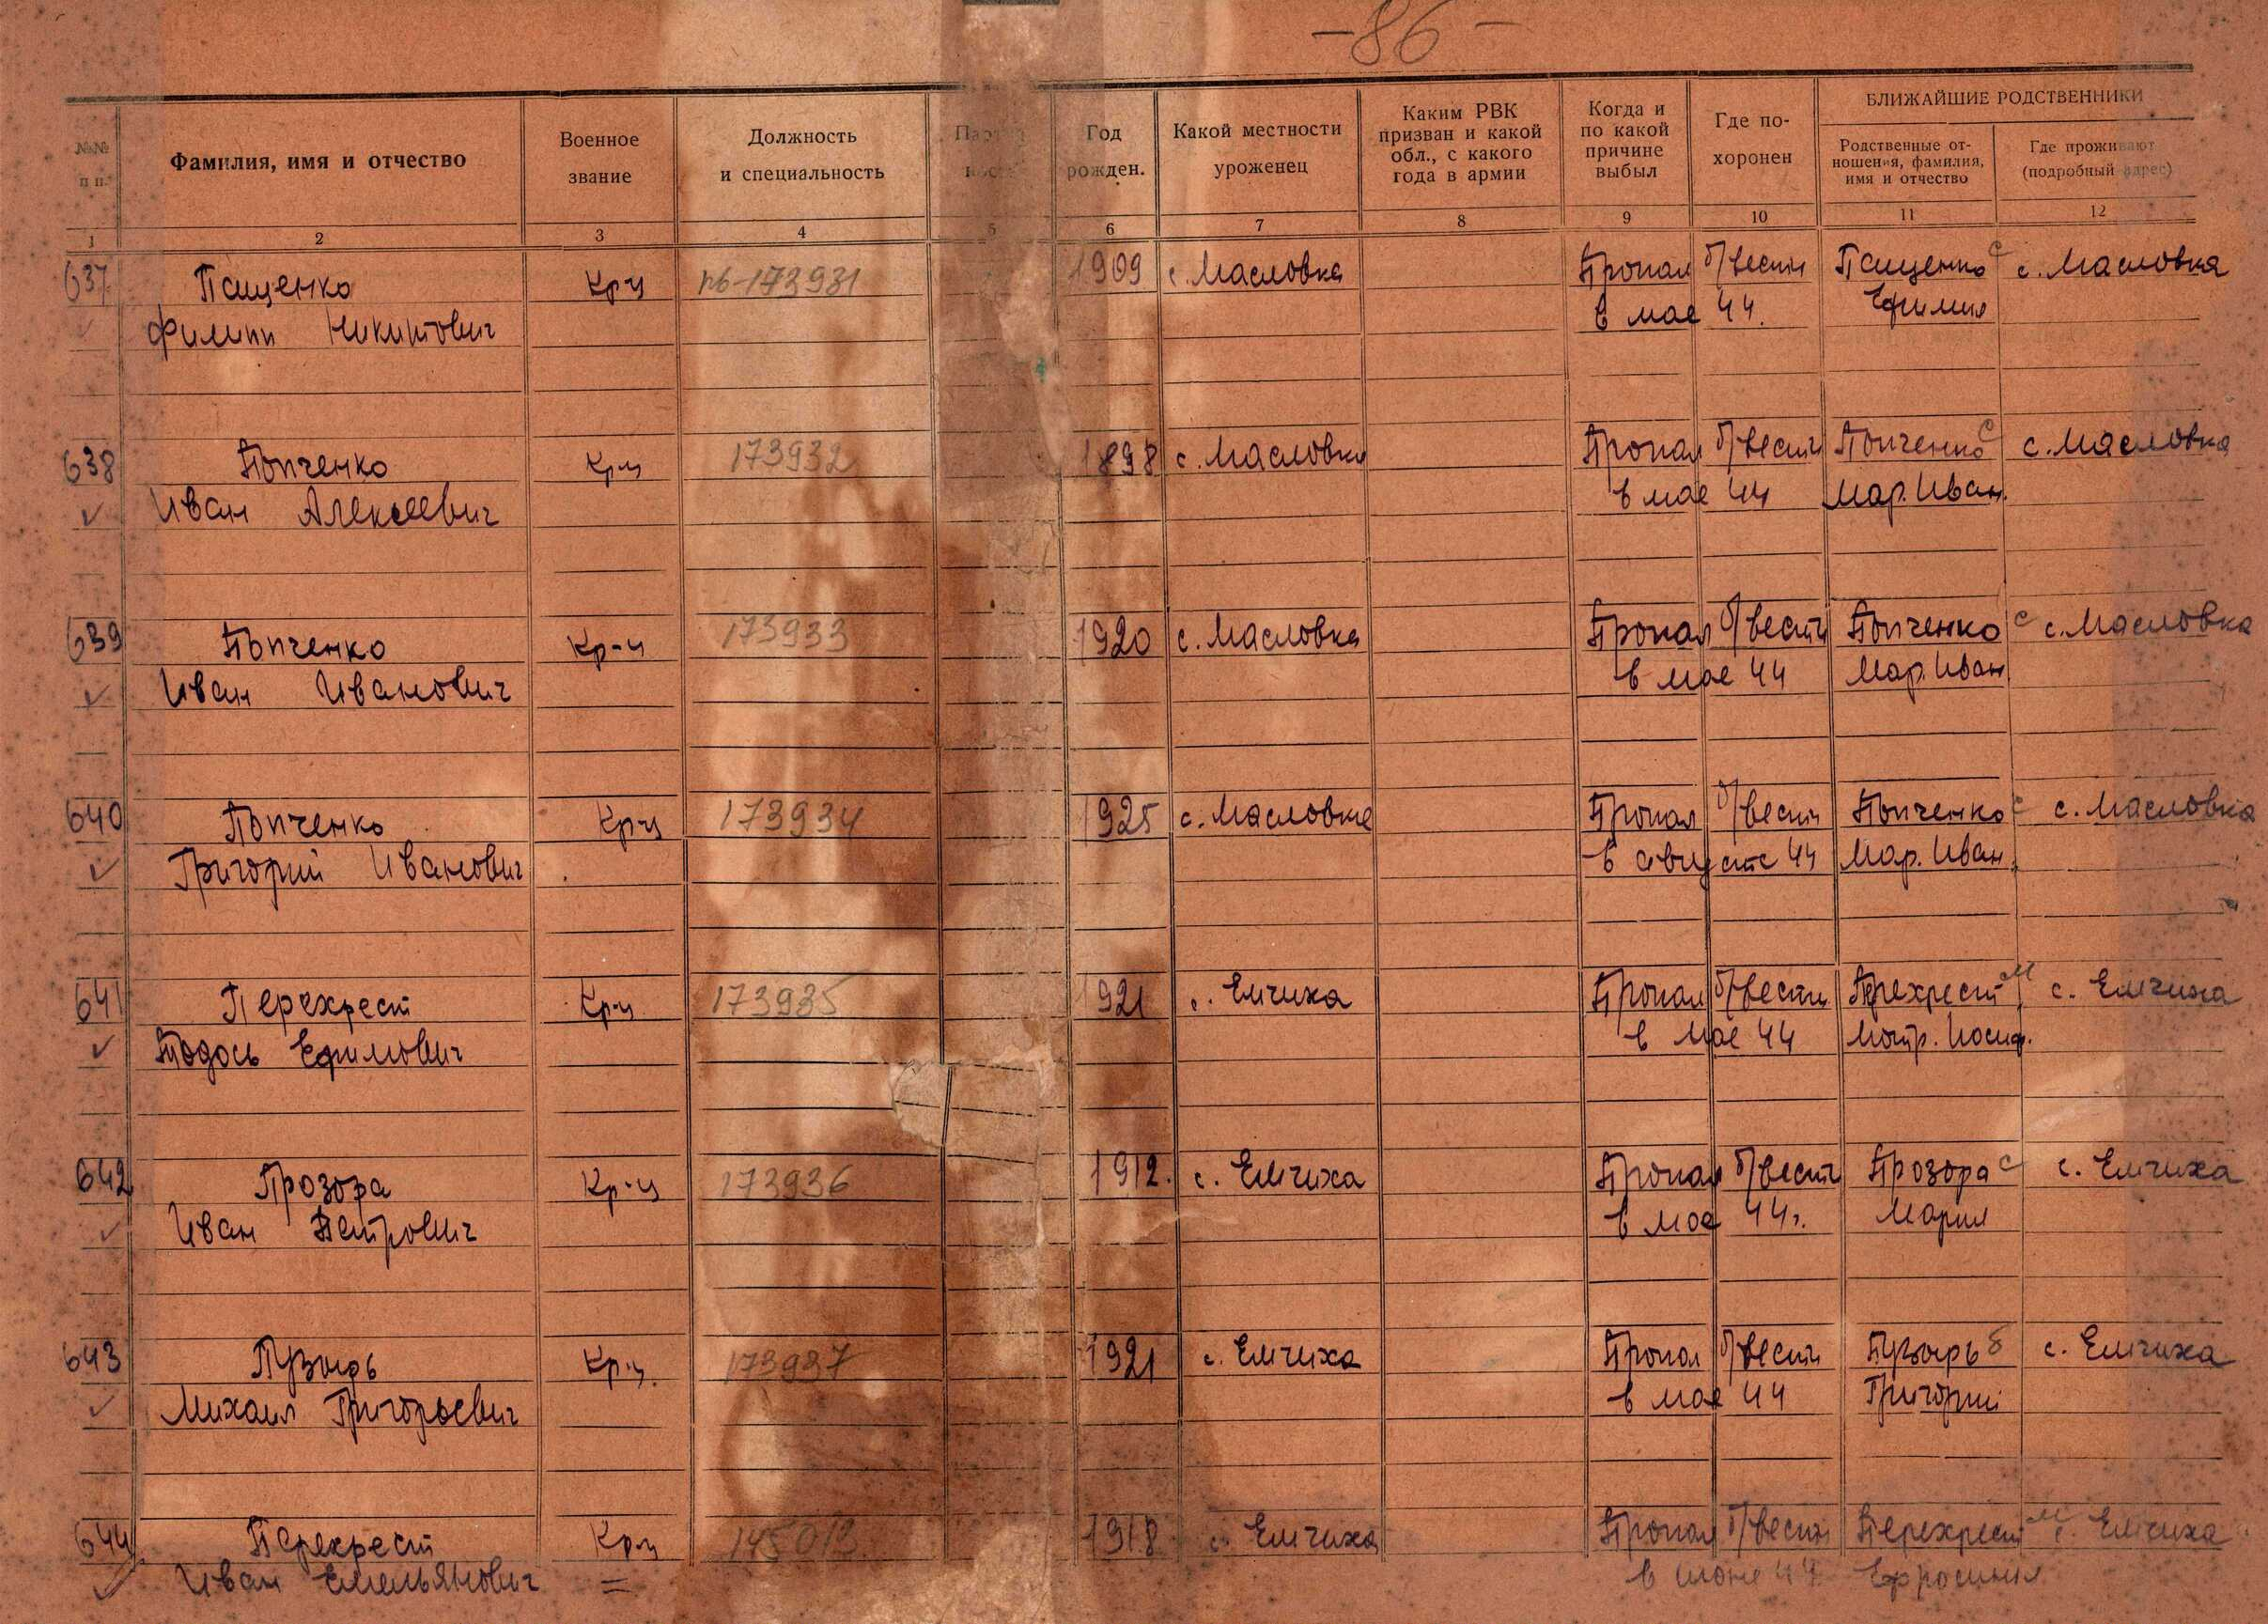 -86-
№№ п п.
Фамилия, имя и отчество
Военное звание
Должность и специальность
Год рожден.
Какой местности уроженец
Каким РВК призван и какой обл., с какого года в армии
Когда и по какой причине выбыл
Где по-хоронен
БЛИЖАЙШИЕ РОДСТВЕННИКИ
Родственные от-ношения, фамилия, имя и отчество
Где проживают (подробный адрес)
1 2 3 4 5 6 7 8 9 10 11 12
637 Пащенко Кр-ц пб-173931 1909 с. Масловка Пропал б/вести Пащенко с с. Масловка
Филипп Никитович в мае 44. Ефимия
638 Попченко Кр-ц 173932 1898 с. Масловка Пропал б/вести Попченко с с. Масловка
Иван Алексеевич в мае 44 Мар. Иван.
639 Попченко Кр-ц 173933 1920 с. Масловка Пропал б/вести Попченко с с. Масловка
Иван Иванович в мае 44 Мар. Иван
640 Попченко Кр-ц 173934 1925 с. Масловка Пропал б/вести Попченко с с. Масловка
Григорий Иванович в августе 44 Мар. Иван.
641 Перехрест Кр-ц 173935 1921 с. Емчиха Пропал б/вести Перехрест м с. Емчиха
Тодось Ефимович в мае 44 Мотр. Иосиф.
642 Прозора Кр-ц 173936 1912. с. Емчиха Пропал б/вести Прозора с с. Емчиха
Иван Петрович в мае 44г. Мария
643 Пузырь Кр-ц. 173937 1921 с. Емчиха Пропал б/вести Пузырь б с. Емчиха
Михаил Григорьевич в мае 44 Григорий
644 Перекрест Кр-ц 145013 1918 с. Емчиха Пропал б/вести Перехрест м с. Емчиха
Иван Емельянович = в июне 44 Ефросиния